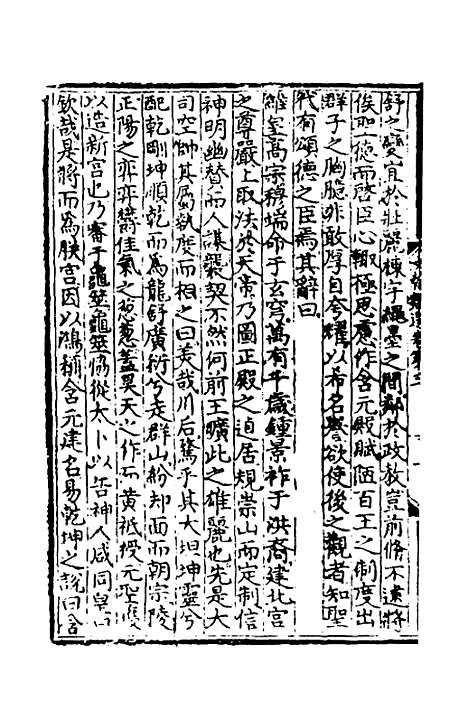 舒之變宜於壯麗棟宇繩墨之間鄰於政教豈前脩不遠將
俟聖德而啓臣心輒極思慮作含元殿賦陋百王之制度出
群子之胸臆非敢厚自夸耀以希名譽欲使後之觀者知聖
代有頌德之臣焉其辭曰
維皇高宗穆端命于玄穹萬有千歲鍾景祚于洪裔建北宮
之尊嚴上取法於天帝乃圖正殿之造居規崇山而定制信
神明幽替而人謀襲契不然何前王曠此之雄麗也先是大
司空帥其屬執度而相之曰美哉川后驚乎其大坦坤靈兮
配乾剛坤順乾而為龍舒廣衍兮走群山紛却面而朝宗陵
正陽之奕奕欝佳氣之葱葱蓋昊天之作而黃祇授元聖
以造新宮也乃審于龜筮龜筮協從太卜以告神人咸同皇曰
欽哉是將而為朕宮因以鴻稱含元建名易乾坤之說曰含